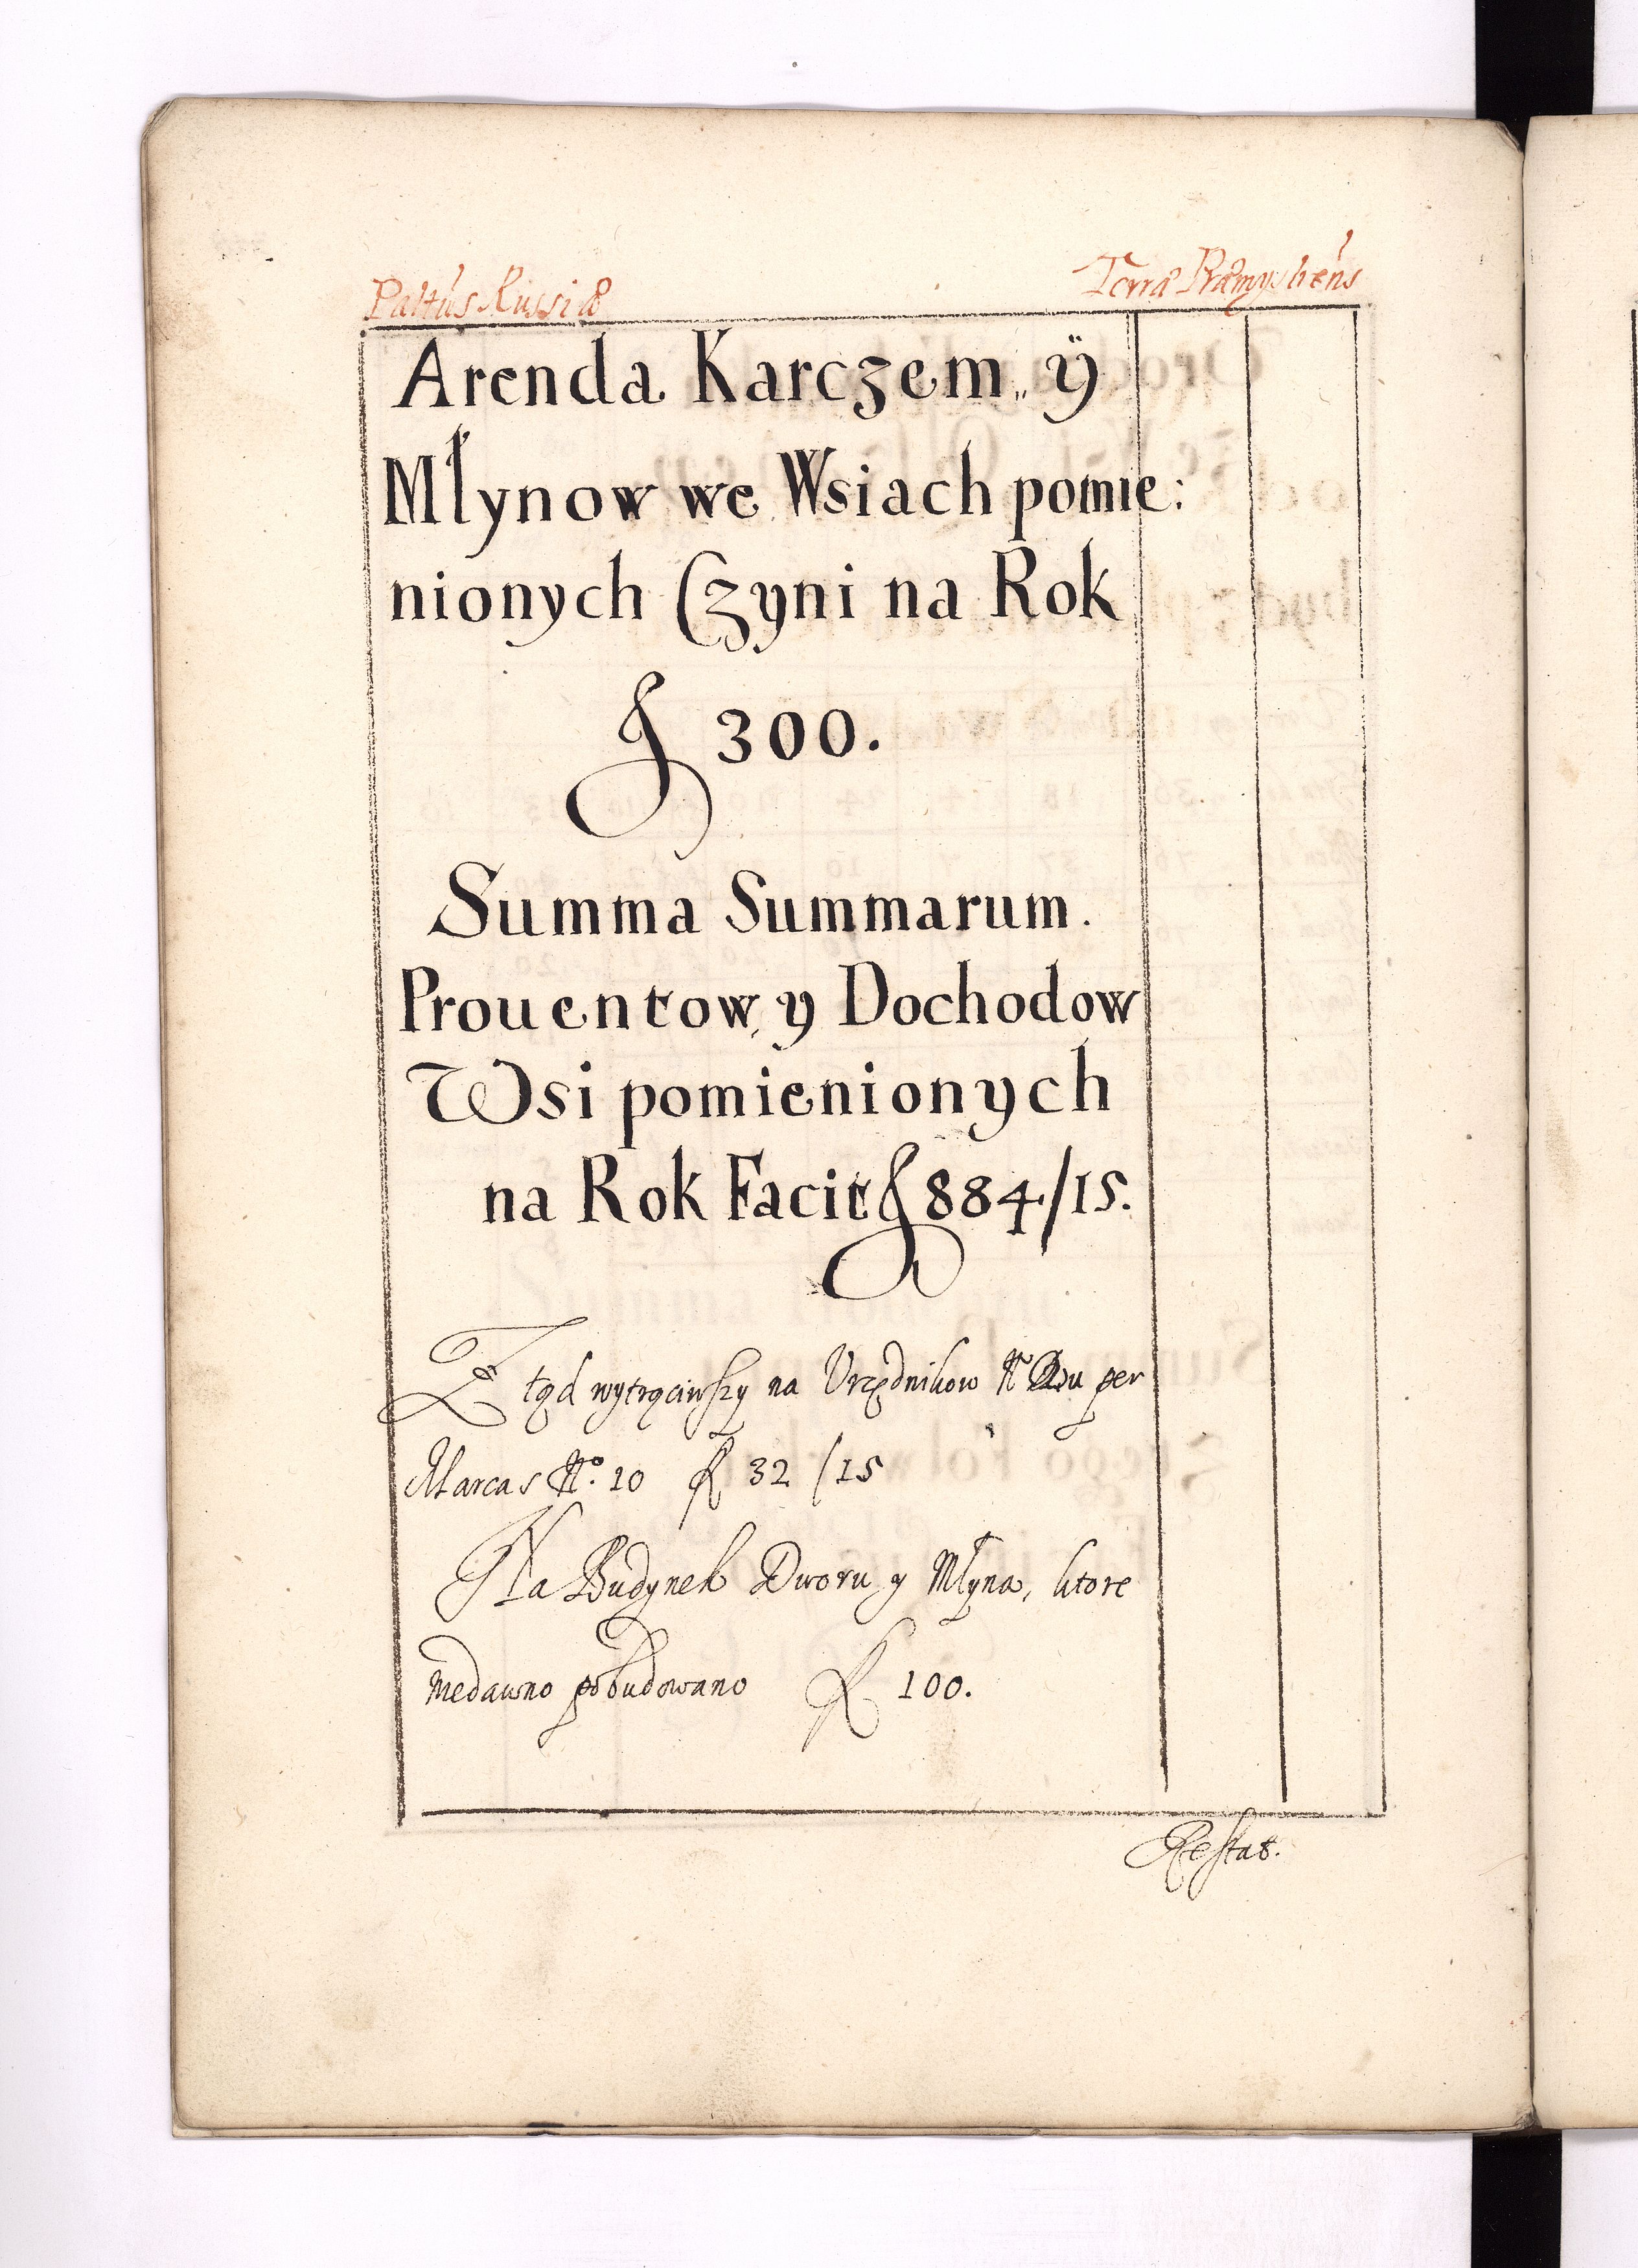 Paltus Russiæ Terra Præmysliens
Arenda Karczem, ÿ
Młynow we Wsiach pomie:
nionych Czyni na Rok
f 300.
Summa Summarum.
Prouentow, y Dochodow
Wsi pomienionych
na Rok Facit f 884/15.
Z tąd wytrąciwszy na Urzędnikow N Dwu per
Marcas No. 10 f 32/15
Na Budynek Dworu y Młyna, ktore
niedawno pobudowano f 100.
Restat.